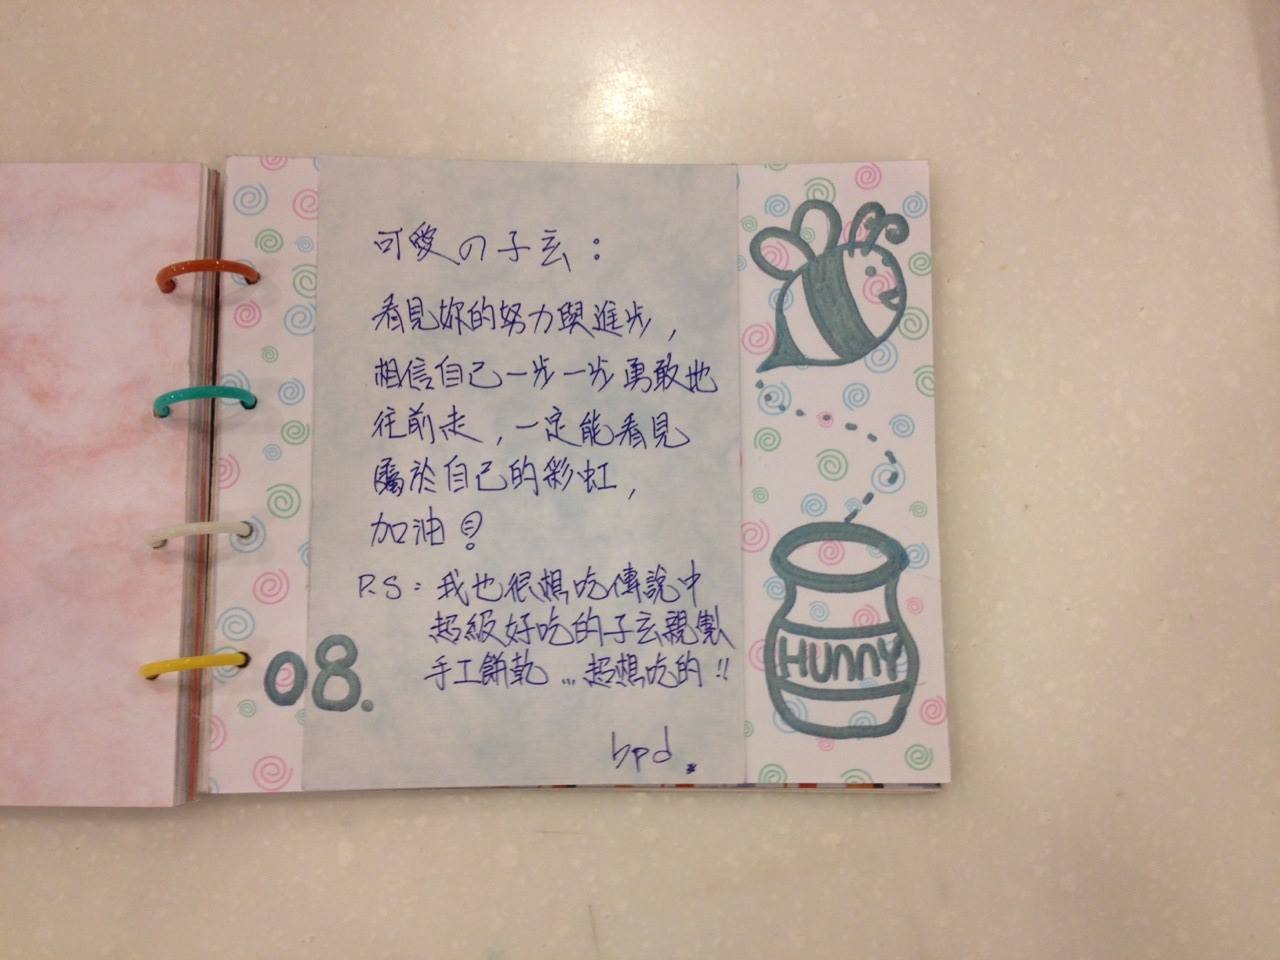 可愛の子玄：
看見妳的努力與進步，
相信自己一步一步勇敢地
往前走，一定能看見
屬於自己的彩虹，
加油！
P.S：我也很想吃傳說中
超級好吃的子玄親製
手工餅乾...超想吃的!!
bpd.
08.
HUNNY